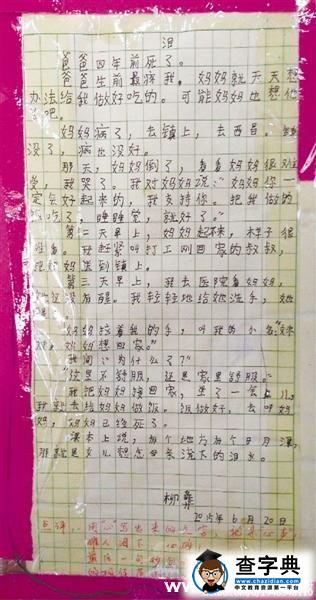 泪
爸爸四年前死了。
爸爸生前最疼我，妈妈就天天想
办法给我做好吃的。可能妈妈也想他
吧。
妈妈病了，去镇上，去西昌。
没了，病也没好。
那天，妈妈倒了，看看妈妈很难
受，我哭了。我对妈妈说：“妈妈你一
定会好起来的，我支持你。把我做的
饭吃了，睡睡觉，就好了。”
第二天早上，妈妈起不来，样子很
难看。我赶紧叫打工刚回家的叔叔，
把妈妈送到镇上。
第三天早上，我去医院看妈妈，
她还没有醒。我轻轻地给她洗手，她
妈妈拉着我的手，叫我的小名：“妹
妹，妈妈想回家。”
我问：“为什么了？”
“这里不舒服，还是家里舒服。”
我把妈妈接回家，坐了一会儿，
我就去给妈妈做饭。饭做好，去叫妈
妈，妈妈已经死了。
课本上说，有个地方有个日月潭，
那就是女儿想念母亲流下的泪水。
柳彝
2015年6月20日
点评：用心写出来的文字，
最后一句
查字典
www.chazidian.com
中文教育资源第一平台